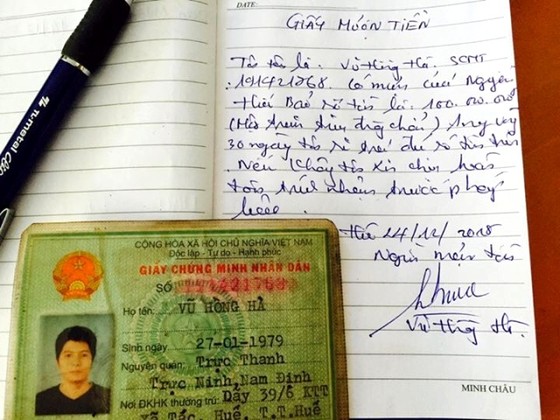 DATE:
GIẤY MƯỢN TIỀN
Tôi tên là. Vũ Hồng Hà. SCMT
191421768. Có mượn của Nguyễn
Thái Bảo số tiền là. 100.000.000
(Một trăm triệu đồng chẵn) trong vòng
30 ngày tôi sẽ trả đủ số tiền trên
Nếu không tôi xin chịu hoàn
toàn trách nhiệm trước pháp
luật.
Huế 14/12/2015
Người mượn tiền
Vũ Hồng Hà.
MINH CHÂU
CỘNG HÒA XÃ HỘI CHỦ NGHĨA VIỆT NAM
Độc lập - Tự do - Hạnh phúc
GIẤY CHỨNG MINH NHÂN DÂN
SỐ
Họ tên: VŨ HỒNG HÀ
Sinh ngày 27-01-1979
Nguyên quán: Trực Thanh
Trực Ninh, Nam Định
Nơi ĐKHK thường trú: Dãy 39/6 KTT
Xã Tắc, Huế, T.T.Huế